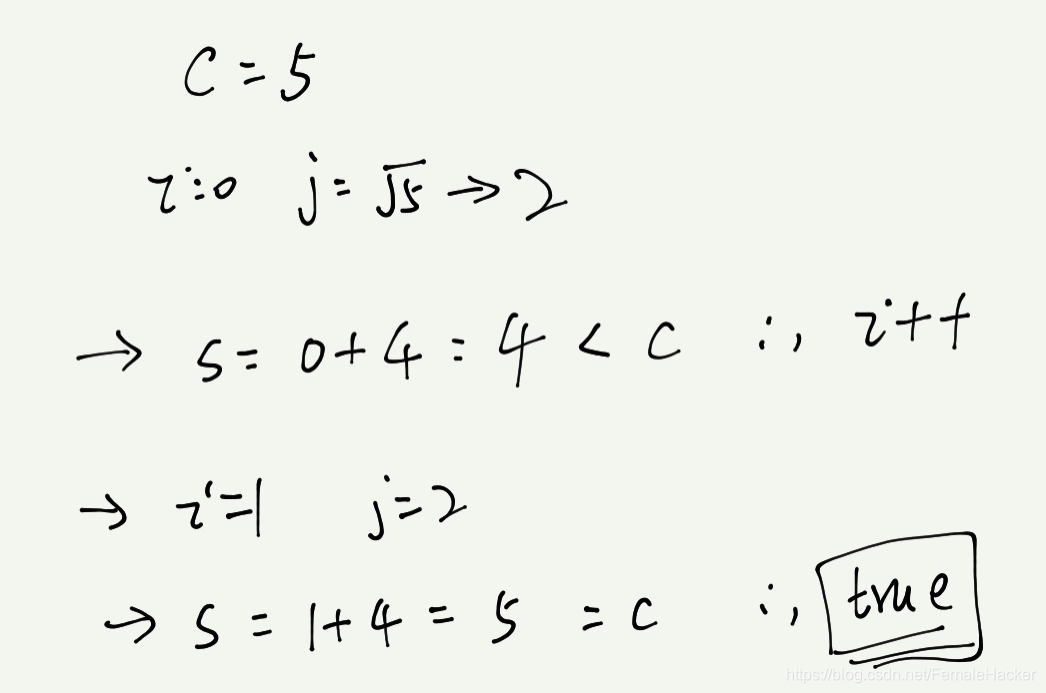 C = 5
i=0 j = √5 → 2
→ s = 0+4 = 4 < c ∴, i++
→ i=1 j=2
→ s = 1+4 = 5 = c ∴, true
https://blog.csdn.net/FemaleHacker